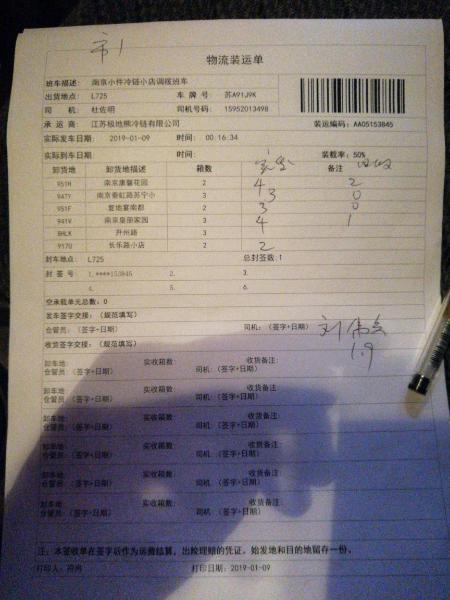 市1
物流装运单
班车描述: 南京小件冷链小店调拨班车
出货地点: L725 车 牌 号: 苏A91J9K
司 机: 杜佐明 司机号码: 15952013498
承 运 商: 江苏极地熊冷链有限公司 装运编码: AA05153845
实际发车日期: 2019-01-09 时间: 00:16:34
实际到车日期: 时间: 装载率: 50%
卸货地 卸货地描述 箱数 备注
951H 南京康馨花园 2 4 2
947Y 南京秦虹路苏宁小 3 3 0
951F 爱地富南都 2 3 0
941V 南京皇册家园 3 4 1
8HLK 尹州路 3
917U 长乐路小店 2 2
封车地点: L725 总封签数:1
封 签 号 1.****153845 2. 3.
4. 5. 6.
空承载单元总数: 0
发车签字交接: (规范填写)
仓管员: (签字+日期) 司机: (签字+日期)
1.9
收货签字交接: (规范填写)
卸车地: 实收箱数 收货备注:
仓管员: (签字+日期) 司机: (签字+日期)
卸车地: 实收箱数 收货备注:
仓管员: (签字+日期) 司机: (签字+日期)
卸车地: 实收箱数 收货备注:
仓管员: (签字+日期) 司机: (签字+日期)
卸车地: 实收箱数: 收货备注:
仓管员: (签字+日期) 司机: (签字+日期)
卸车地: 实收箱数: 收货备注:
仓管员: (签字+日期) 司机: (签字+日期)
卸车地: 实收箱数: 收货备注:
仓管员: (签字+日期) 司机: (签字+日期)
注: 本签收单在签字后作为运费结算, 出险理赔的凭证。始发地和目的地留存一份。
打印人: 符冉 打印日期: 2019-01-09